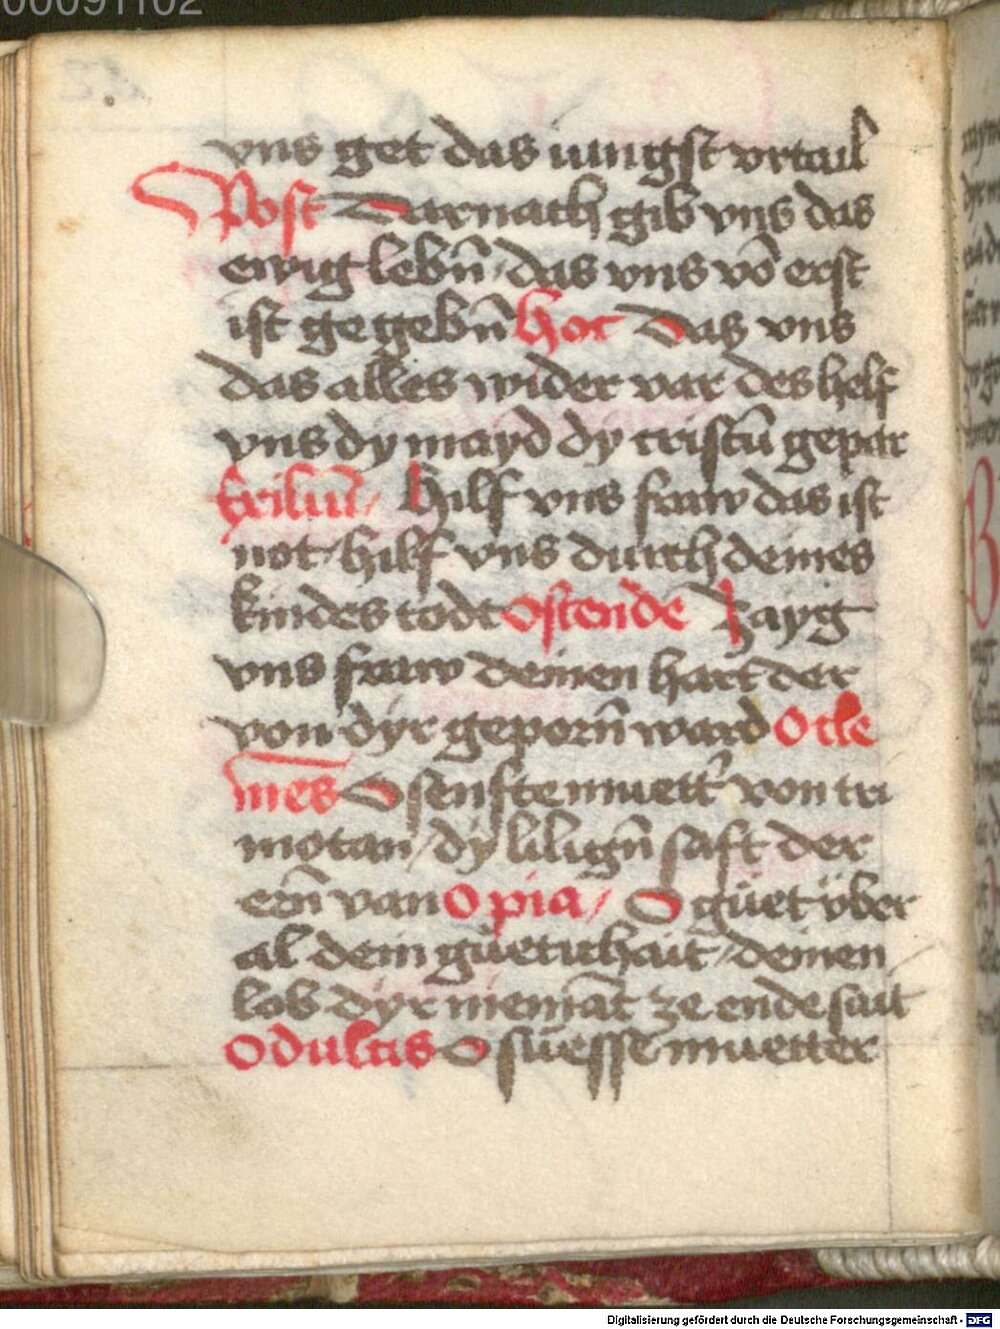 00091102
vns get das iungst vrtail
Post Darnach gib vns das
ewig lebn̄ das vns vō erst
ist gegebn̄ hoc Das vns
das alles wider var des helf
vns dy mayd dy cristū gepar
Exiliū / Hilf vns fraw das ist
not hilf vns durch deines
kindes todt Ostende Zayg
vns fraw deinen hart der
von dyr geporn̄ ward O cle
mēs O senfte muett' von tri
motan / dy lilign̄ saft der
ern̄ van O pia / O güet über
al dein güetichait / deinen
lob dyr niemāt ze ende sait
O dulcis O süesse muetter
Digitalisierung gefördert durch die Deutsche Forschungsgemeinschaft - DFG